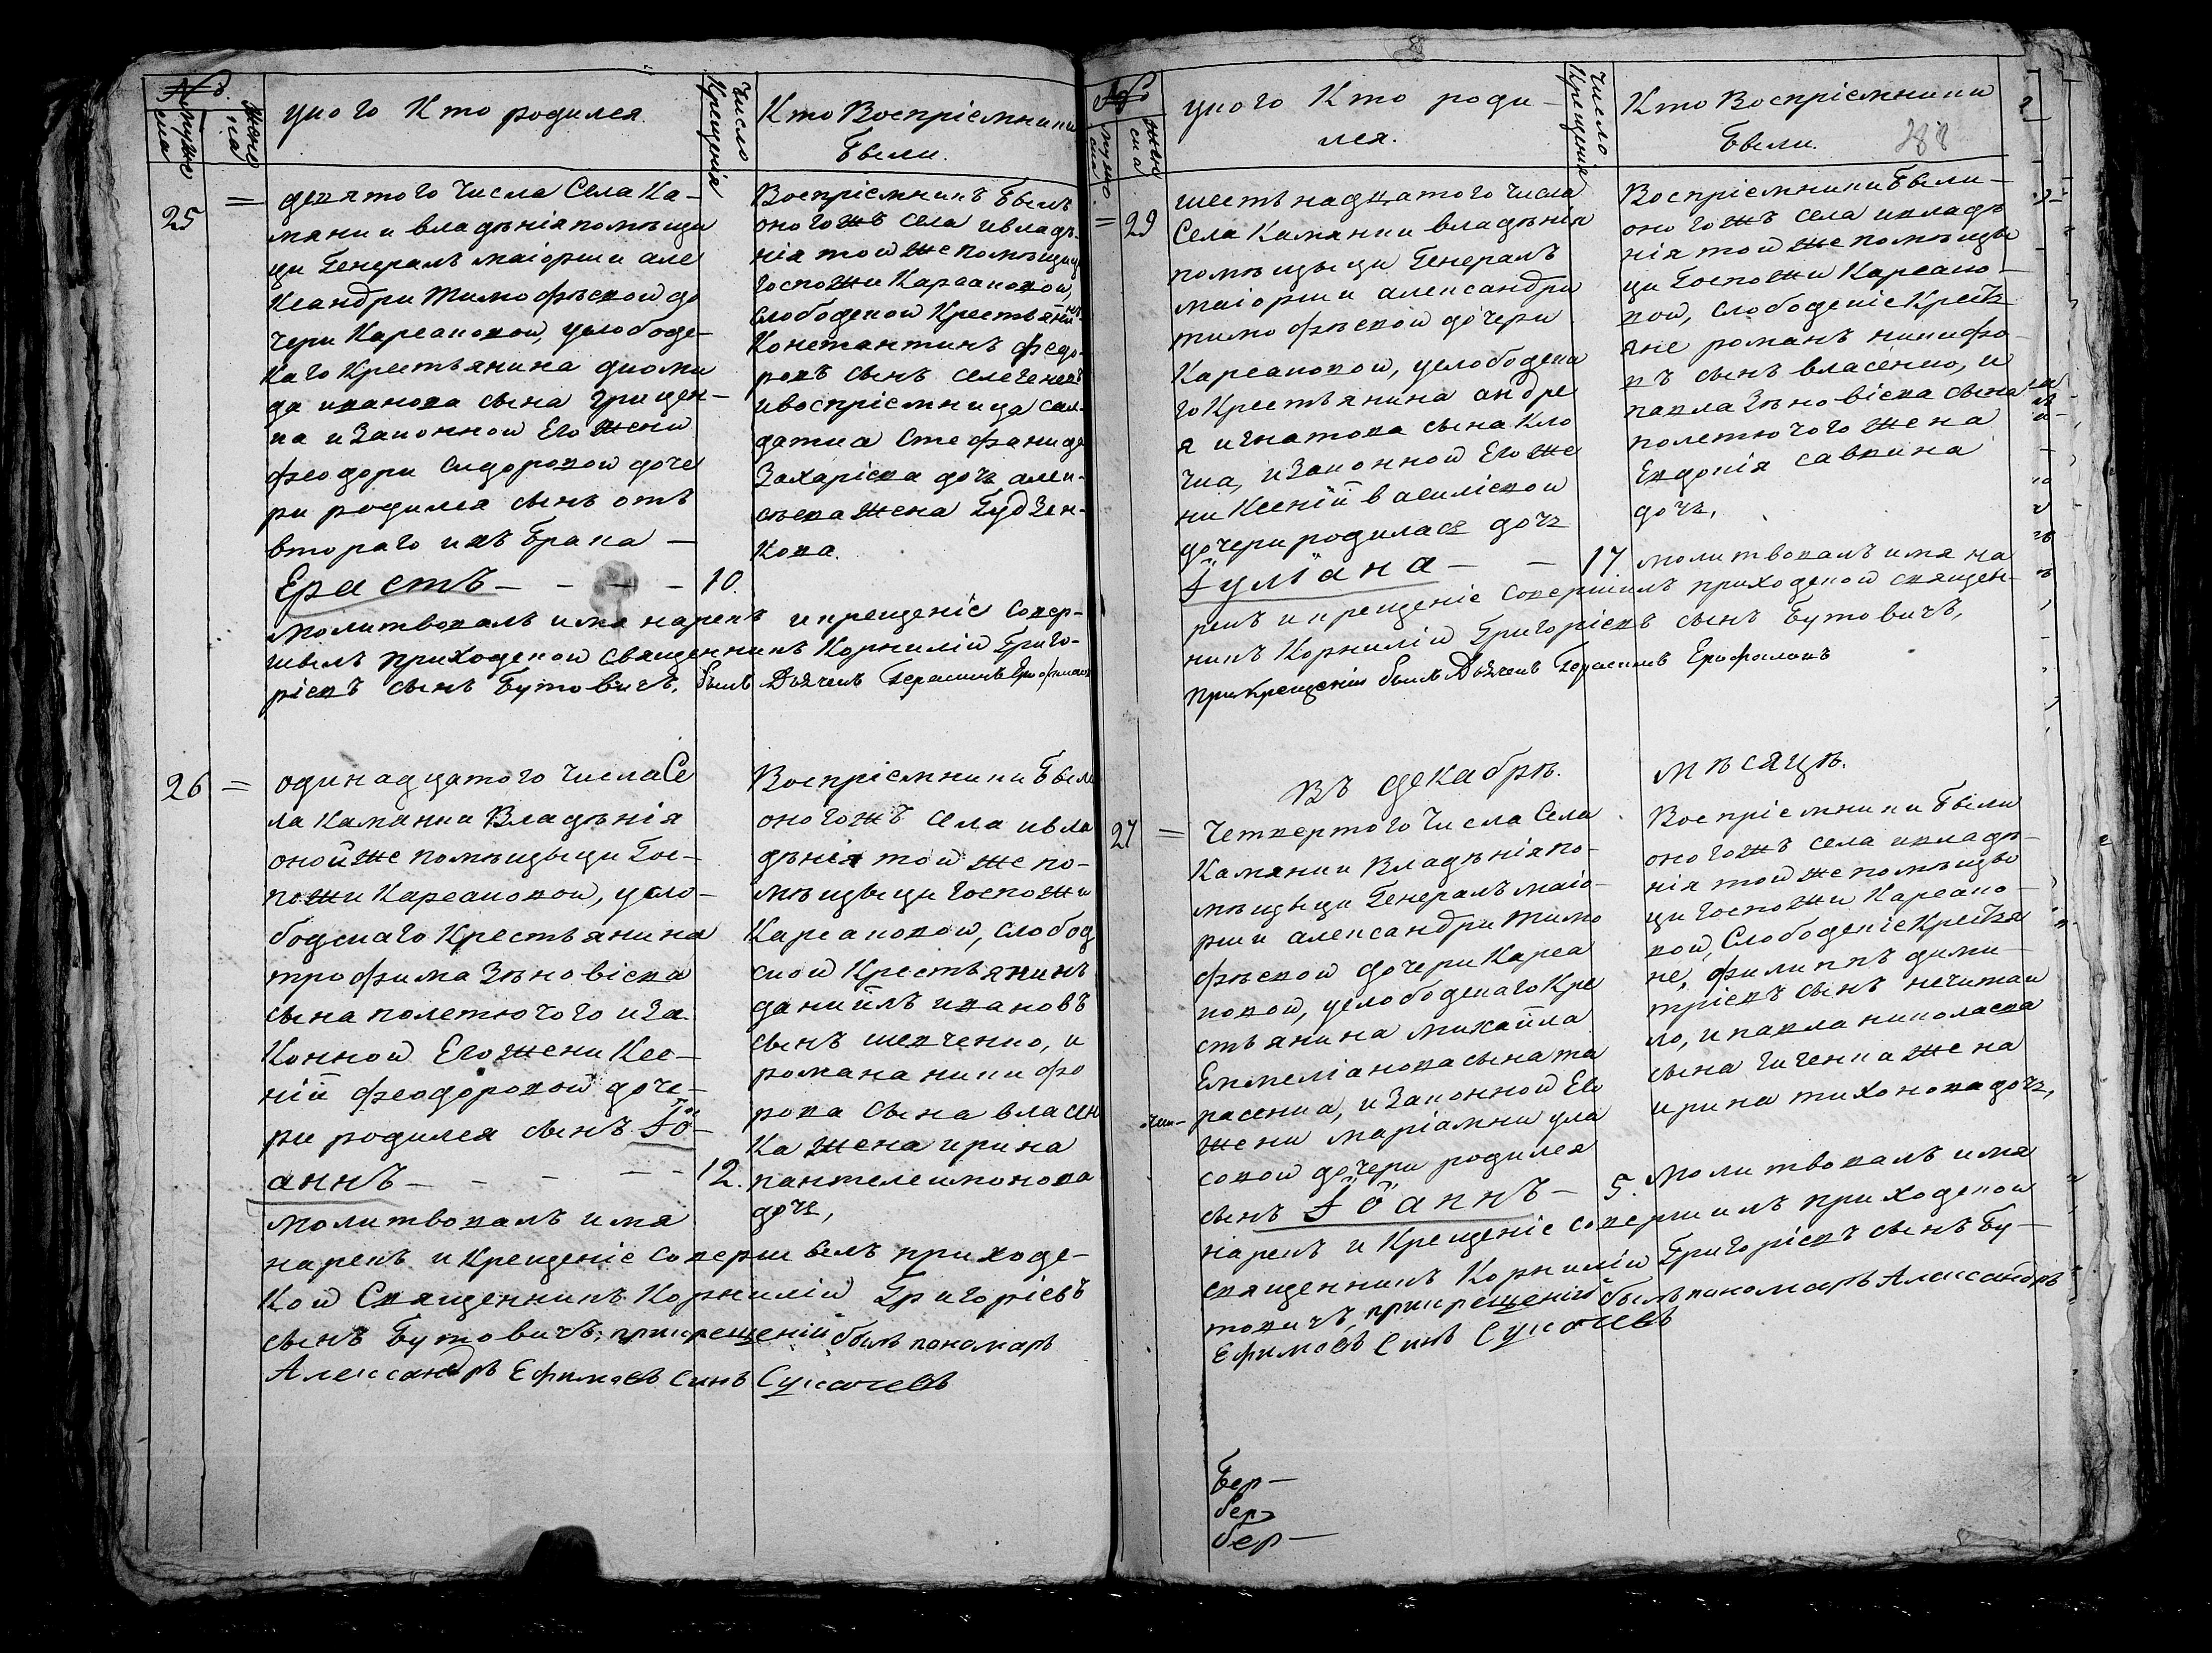 №
мужеска
женска
Уного Кто родился
Число Крещенія
Кто Воспріемники
были.
25 =
девятого числа Села Ка-
мянки владѣнія помѣщи
ци Генералъ маіорши але
ксандри Тимофѣевой до
чери Карсаковой, услободс-
каго Крестьянина диоми
да иванова сына Грицен-
ка и Законной Его жени
феодори Сидоровой доче
ри родился сынъ отъ
втораго ихъ брака -
Ерастъ - - - - 10.
Воспріемникъ былъ
оногожъ села ивладѣ-
нія тойже помѣщици
Госпожи Карсаковой,
слободской Крестьянинъ
Константинъ федо-
ровъ сынъ
ивоспріемница сол-
датка Стефанида
Захаріева дочь алек-
сѣева жена Гудзен-
кова.
Молитвовалъ имя нарекъ и крещеніе совер-
шилъ приходской священникъ Корнилій Григо-
ріевъ сынъ Бутовичъ, былъ Дьячекъ Герасимъ Ерофѣловъ
26 =
одинадцатого числа Се
ла Камянки Владѣнія
онойже помѣщыци Гос-
пожи Карсаковой, усло-
бодскаго Крестьянина
трофима Зѣновіева
сына полетючого и За
Конной Его жени Ксе-
ніи феодоровой доче-
ри родился сынъ Іо-
аннъ - - - - 12.
Воспріемники были
оногожъ села ивла
дѣнія той же по-
мѣщыци госпожи
Карсаковой, слобод
ской Крестьянинъ
даниилъ ивановъ
сынъ шевченко, и
романа никифо
рова сына власен
ка жена ирина
пантелеимонова
дочь,
Молитвовалъ имя
нарекъ и крещеніе совершилъ приходс-
кой Священникъ Корнилій Григоріевъ
сынъ Бутовичъ, прикрещеніи былъ паномаръ
Александръ Ефимовъ синъ Сукачевъ
№
мужеска
женска
Уного Кто роди-
лся.
Число Крещенія
Кто Воспріемники
были.
288
= 29
шестьнадцатого числа
Села Камянки владѣнія
помѣщыци Генералъ
маіорши александри
тимофѣевой дочери
Карсаковой, услободска
го Крестьянина андре
я игнатова сына Кло
чка, и Законной Его же
ни Ксеніи василіевой
дочери родилась дочь
Іуліана - - 17
Воспріемники были-
оногожъ села ивладѣ
нія тойже помѣщы
ци Госпожи Карсако-
вой, слободскіе Кресть
яне романъ никифо
въ сынъ власенко, и
павла Зѣновіева сына
полетючого жена
Евдокія саввина
дочь,
Молитвовалъ имя на
рекъ и крещеніе совершилъ приходской священ-
никъ Корнилій Григоріевъ сынъ Бутовичъ,
при крещеніи былъ Дьячекъ Герасимъ Ерофѣловъ
Въ декабрѣ. мѣсяцѣ.
27 =
Четвертого Числа Села
Камянки Владѣнія по-
мѣщыци Генералъ маіо-
рши александри Тимо
фѣевой дочери Карса
ковой, услободскаго Кре
стьянина михайла
Еммеліанова сына та
расенка, и Законной Его
жени маріамни ула
совой дочери родился
сынъ Іоаннъ - 5.
Воспріемники были
оногожъ села ивладѣ-
нія тойже помѣщы
ци госпожи Карсако-
вой, Слободскіе Крестья
не, филиппъ дими-
тріевъ сынъ нечитай
ло, и павла николаева
сына гиченка жена
ирина тихонова дочь,
Молитвовалъ имя
нарекъ и Крещеніе совершилъ приходской
священникъ Корнилій Григоріевъ сынъ Бу-
товичъ, прикрещеніи былъ паномаръ Александръ
Ефимовъ Синъ Сукачевъ
Бер-
бер
бер-